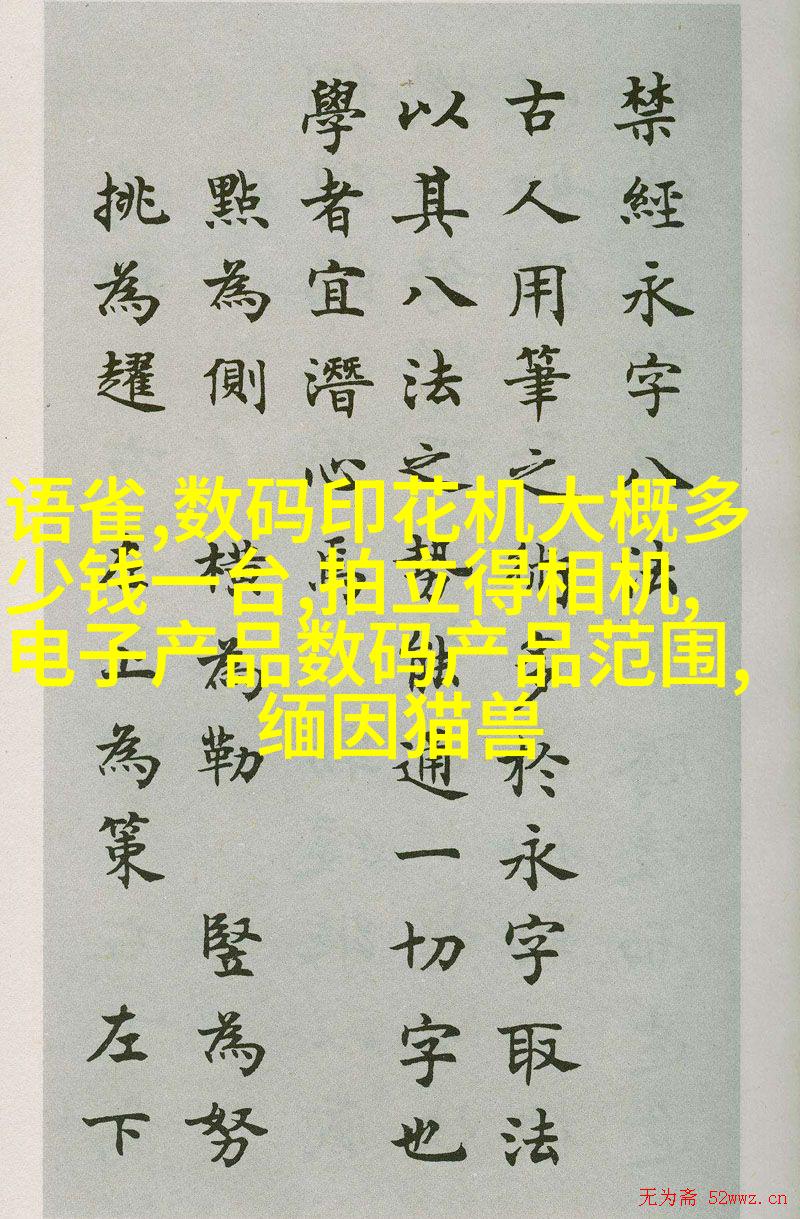 禁經永字八法
古人用筆之術多於永字取法
以其八法之勢能通一切字也
學者宜潛心焉
點為側 橫為勒 豎為努
挑為趯 左上為策 左下
语雀,数码印花机大概多
少钱一台,拍立得相机,
电子产品数码产品范围,
缅因猫兽
无为斋 52wwz.cn